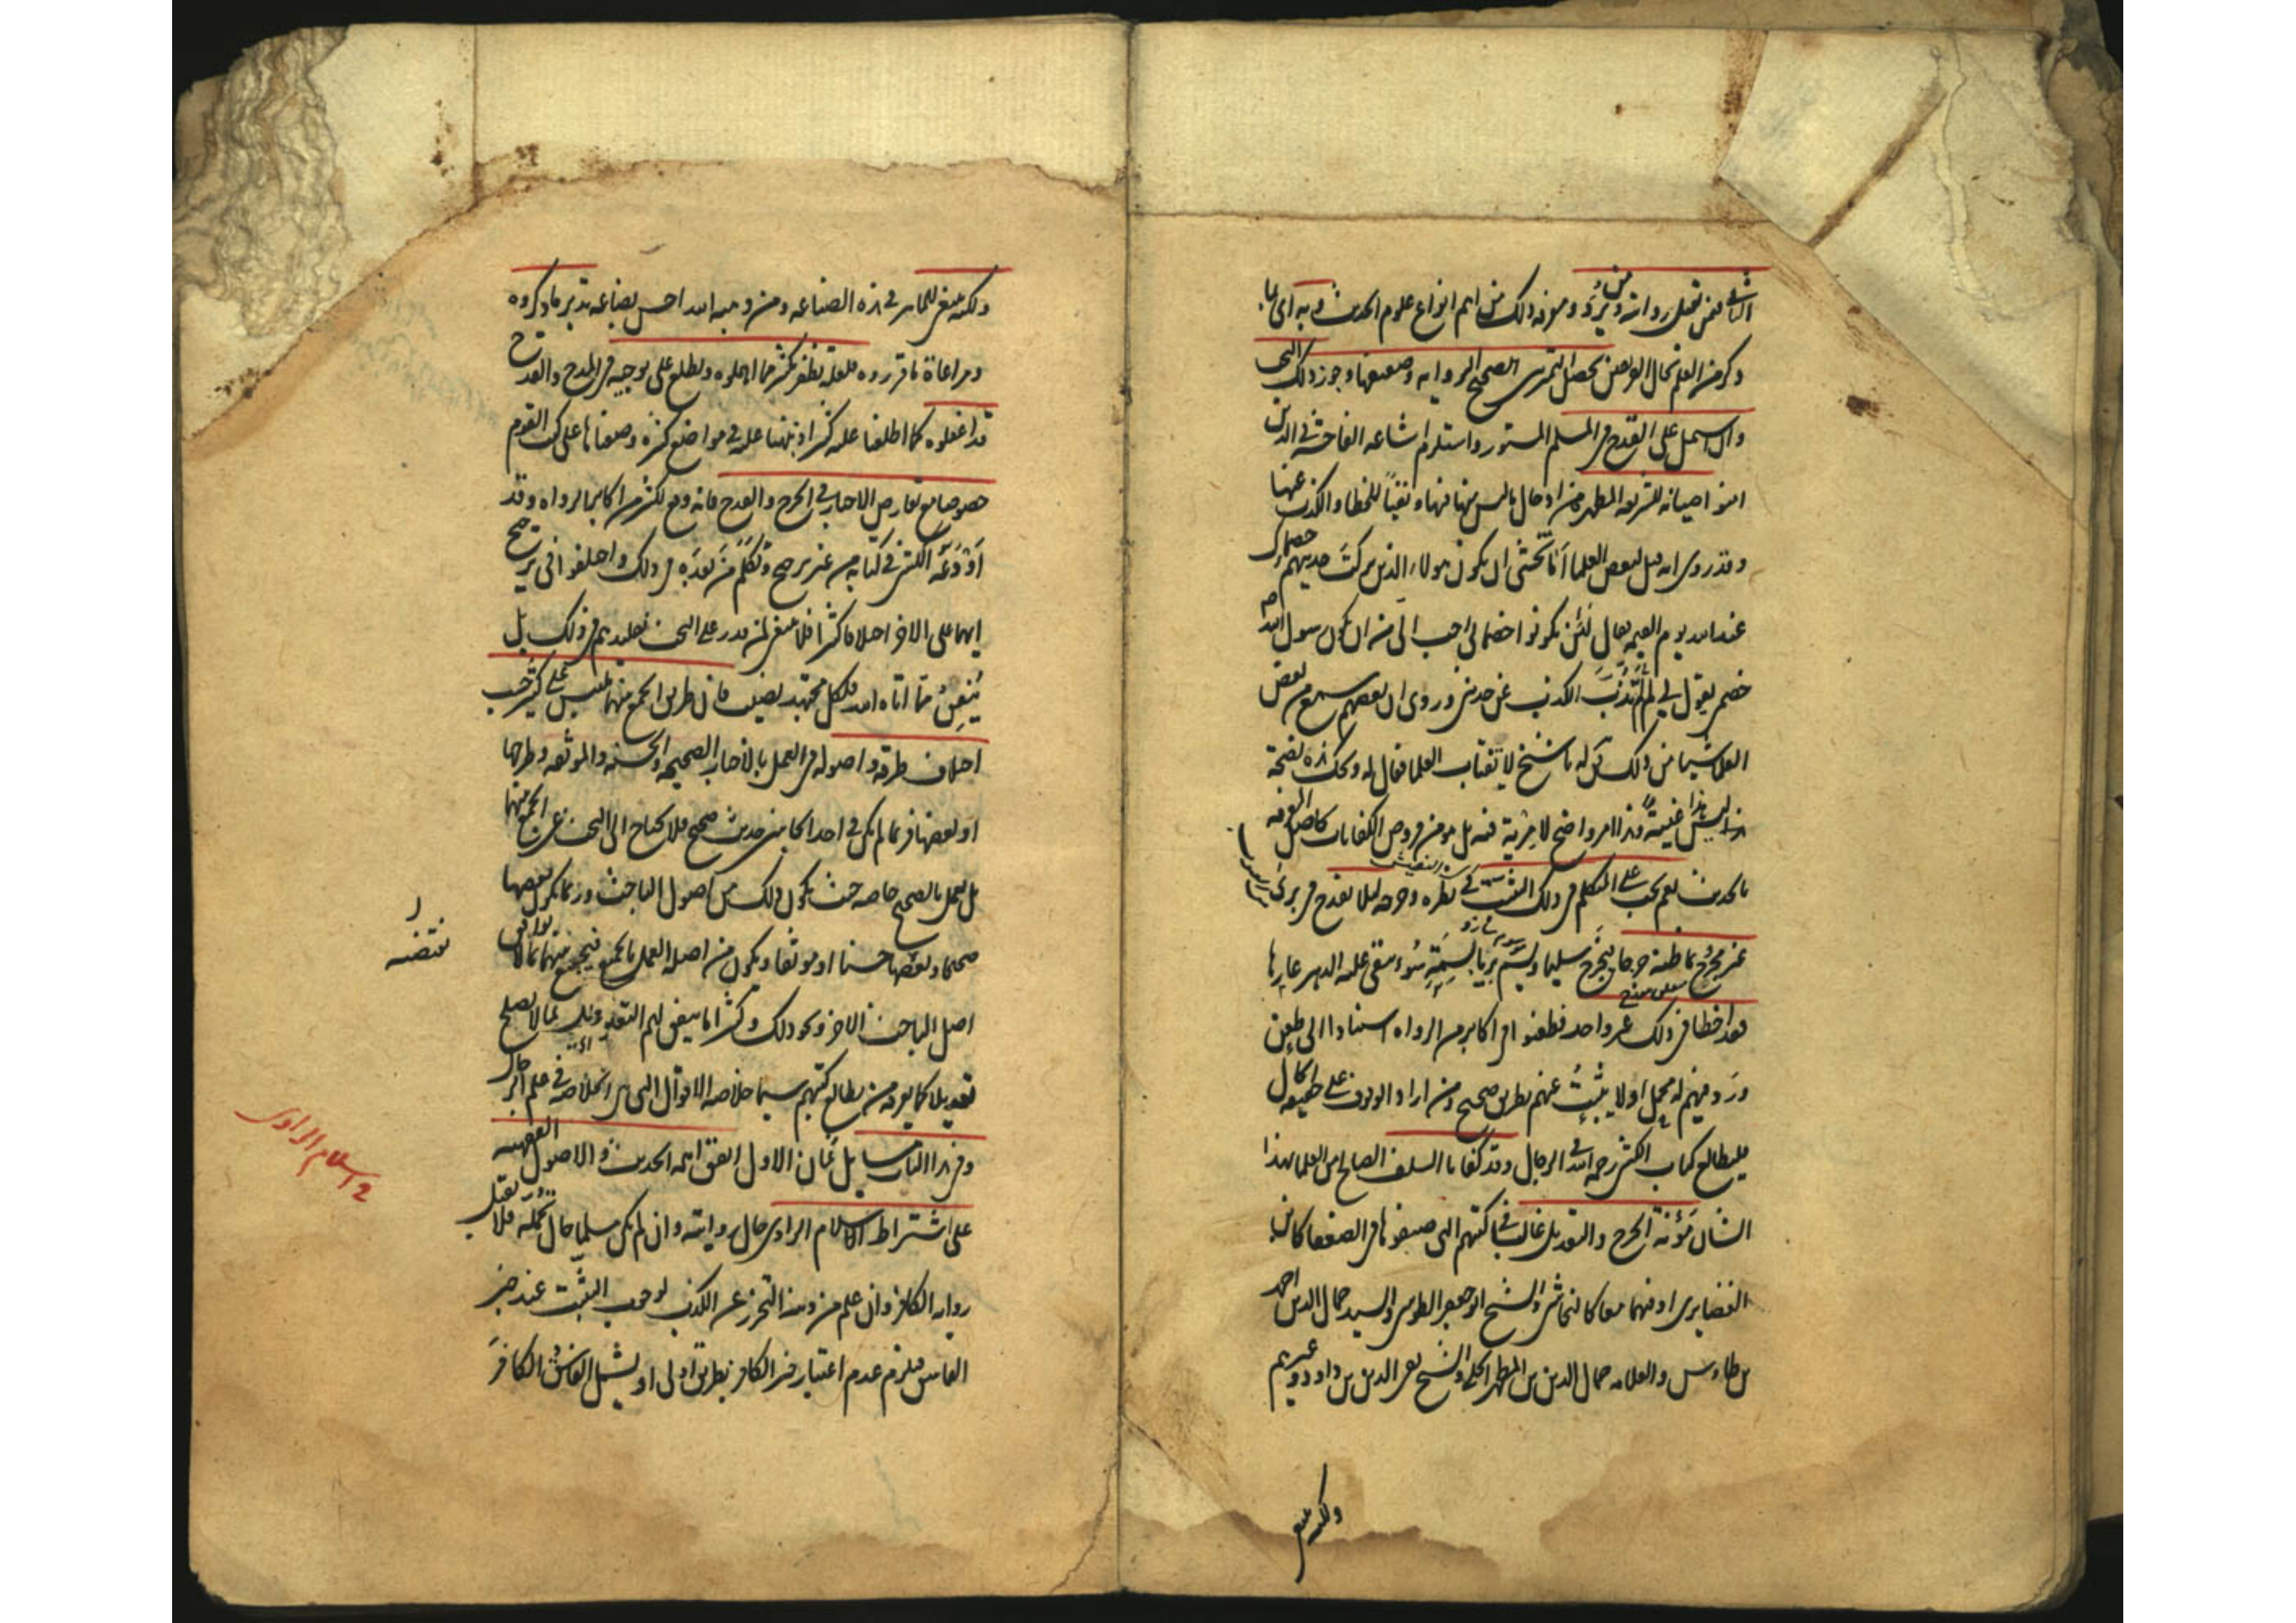 الثاني فيمن تقبل روايته ومن تُرَدُّ ومعرفة ذلك من اهم انواع علوم الحديث وبه اى بما
ذكر من العلم بحال الفريقين يحصل التمييز بين الصحيح الرواية وضعيفها وجوز ذلك البحث
وان اشتمل على القدح في المسلم المستور واستلزم اشاعة الفاحشة في الذين
امنوا صيانة للشريعة المطهرة من ادخال ما ليس منها فيها ونفيًا للخطاء والكذب عنها
وقد روى انه قيل لبعض العلماء اما تخشى ان يكون هولاء الذين تركتَ حديثهم خصماءك
عند الله يوم القيمة فقال لَئِن يكونوا خصمائي احب اليّ من ان يكون رسول الله ص
خصمى يقول لي لِمَ لَمْ تذُبَّ الكذب عن حديثي وروى ان بعضهم سمع من بعض
العلماء شيئا من ذلك فقال له يا شيخ لا تغتاب العلما فقال له ويحك هذه نصيحة
ليس هذا غيبةً وهذا الامر واضح لا مرية فيه بل هو من فروض الكفايات كاصل المعرفة
بالحديث نعم يجب على المتكلم في ذلك التثبت في نظره وجرحه لئلا يقدح في برىء
غير مجروح بما ظنه جرحا فيجرح سليما ويَسِم بريا بسِمَةِ سُوء يبقى عليه الدهر عارها
فقد اخطا في ذلك غير واحد فطعنوا في اكابر من الرواه استنادا الى طعن
ورد فيهم له محمل او لا يثبتُ عنهم بطريق صحيح ومن اراد الوقوف على حقيقة الحال
فليطالع كتاب الكشى رحمه الله في الرجال وقد كفانا السلف الصالح من العلما بهذا
الشان مَؤُنة الجرح والتعديل غالبا في كتبهم التى صنفوها في الضعفا كابن
الغضايرى او فيهما معا كالنجاشى والشيخ ابو جعفر الطوسى والسيد جمال الدين احمد
بن طاوس والعلامه جمال الدين بن المطهر الحلى والشيخ تقى الدين بن داود وغيرهم
ولكنه ينبغى
ولكنه ينبغى للماهر في هذه الصناعه ومن وهبه الله احسن بضاعه تدبر ما ذكروه
ومراعاة ما قرروه فلعله يظفر بكثير مما اهملوه ويطلع على توجيه في المدح والقدح
قد اغفلوه كما اطلعنا عليه كثيرا ونبهنا عليه في مواضع كثيره وضعناها على كتب القوم
خصوصا مع تعارض الاخبار في الجرح والقدح فانه وقع لكثير من اكابر الرواه وقد
أَوْدَعَه الكشى في كتابه من غير ترجيح وتكلم مَن بَعدَه في ذلك واختلفوا في ترجيح
ايهما على الاخر اختلافا كثيرا فلا ينبغى لمن قدر على البحث تقليدهم في ذلك بل
يُنفِقُ مما اتاه الله فلكل مجتهد نصيب فان طريق الجمع بينهما ملتبس على كثير حَسَب
اختلاف طرقه واصوله في العمل بالاخبار الصحيحه والحسنه والموثقه وطرحها
او بعضها فربما لم يكن في احد الجانبين حديث صحيح فلا يحتاج الى البحث عن الجمع بينهما
بل يعمل بالصحيح خاصه حيث يكون ذلك من اصول الباحث وربما يكون بعضها
صحيحا وبعضها حسنا او موثقا ويكون من اصله العمل بالجميع فيجمع بينهما بما لا يوافق
اصل الباحث الاخر ونحو ذلك وكثيرا ما يتفق لهم التعديل بما لا يصلح
تعديلا كما يعرفه من يطالع كتبهم سيما خلاصه الاقوال التى هى الخلاصه في علم الرجال
وفي هذا الباب مسايل ثمان الاول اتفق ايمه الحديث والاصول الفقهيه
على اشتراط اسلام الراوى حال روايته وان لم يكن مسلما حال تحمّله فلا تقبل
روايه الكافر وان علم من دينه التحرز عن الكذب لوجوب التثبت عند خبر
الفاسق فيلزم عدم اعتبار خبر الكافر بطريق اولى او يشمل الفاسق الكافرَ
اسلام الراوى